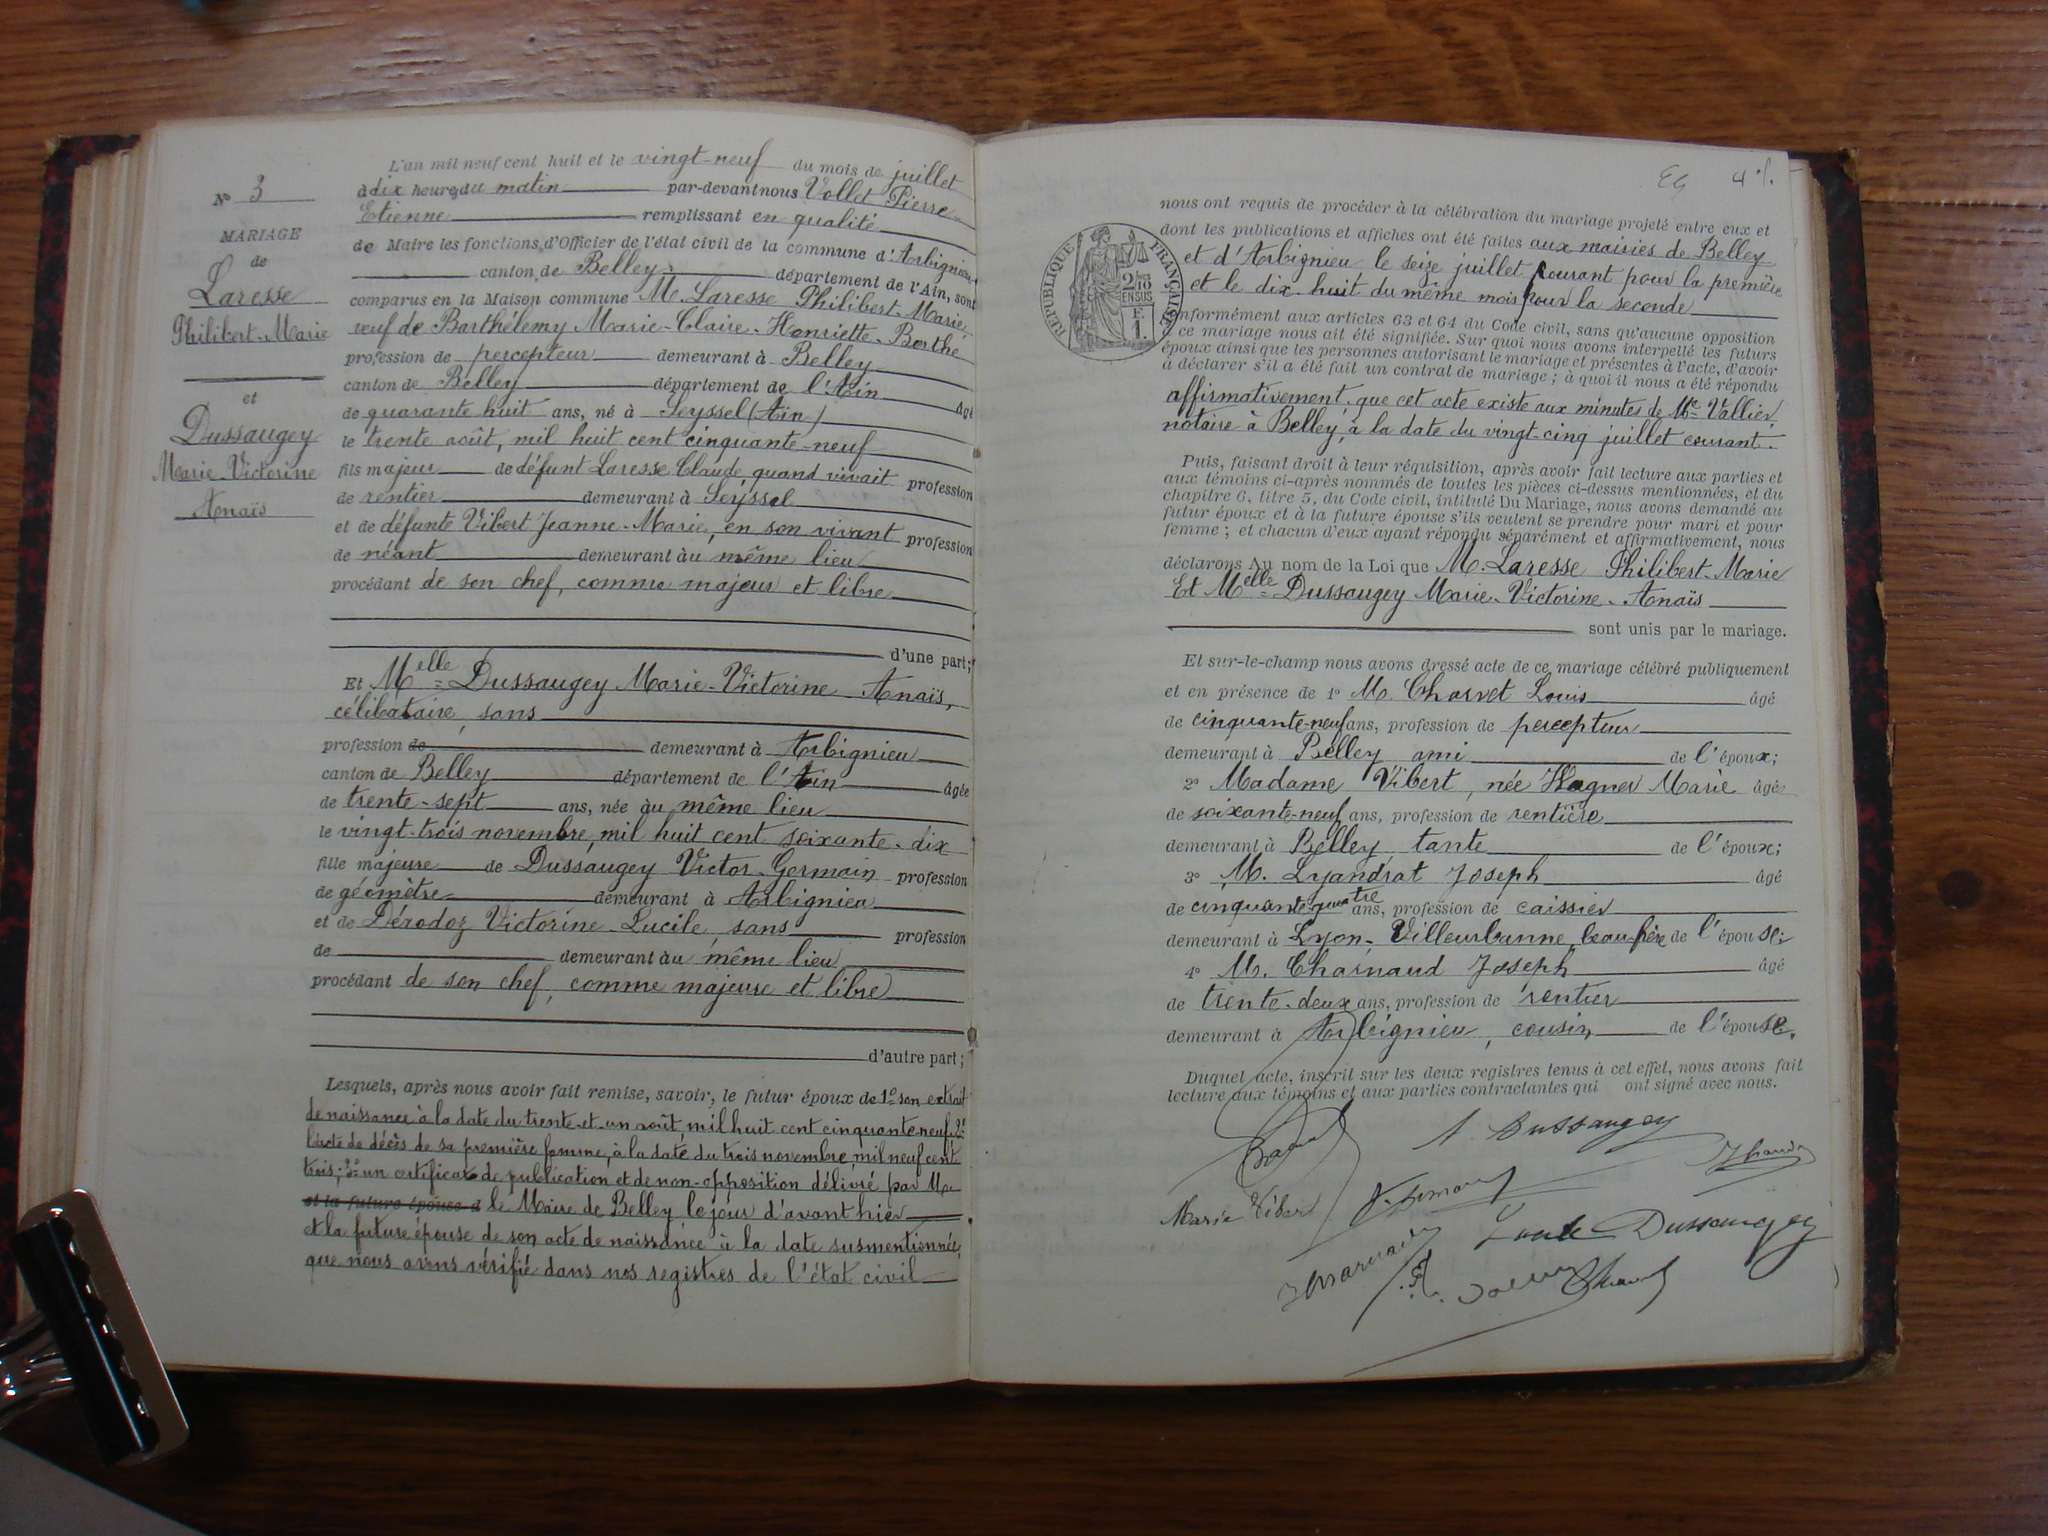 N° 3
MARIAGE
de
Laresse
Philibert-Marie
et
Dussaugey
Marie-Victorine
Anaïs
L'an mil neuf cent huit et le vingt-neuf du mois de juillet
à dix heures du matin par-devant nous Vollet Pierre
Etienne remplissant en qualité
de Maire les fonctions d'Officier de l'état civil de la commune d'Arbignieu
canton de Belley, département de l'Ain, sont
comparus en la Maison commune M. Laresse Philibert-Marie,
veuf de Barthélemy Marie-Claire-Henriette-Berthe
profession de percepteur demeurant à Belley
canton de Belley département de l'Ain âgé
de quarante huit ans, né à Seyssel (Ain)
le trente août, mil huit cent cinquante-neuf
fils majeur de défunt Laresse Claude, quand vivait profession
de rentier demeurant à Seyssel
et de défunte Vibert Jeanne-Marie, en son vivant profession
de néant demeurant au même lieu
procédant de son chef, comme majeur et libre
d'une part;
Et Melle Dussaugey Marie-Victorine Anaïs,
célibataire, sans
profession de demeurant à Arbignieu
canton de Belley département de l'Ain âgée
de trente-sept ans, née au même lieu
le vingt-trois novembre, mil huit cent soixante-dix
fille majeure de Dussaugey Victor-Germain profession
de géomètre demeurant à Arbignieu
et de Dérodoz Victorine-Lucile, sans profession
de demeurant au même lieu
procédant de son chef, comme majeure et libre
d'autre part;
Lesquels, après nous avoir fait remise, savoir, le futur époux de 1° son extrait
de naissance à la date du trente-et-un août, mil huit cent cinquante-neuf; 2°
l'acte de décès de sa première femme, à la date du trois novembre, mil neuf cent
trois; 3° un certificat de publication et de non-opposition délivré par Mr
et la future épouse d le Maire de Belley le jour d'avant hier
et la future épouse de son acte de naissance à la date susmentionnée,
que nous avons vérifié dans nos registres de l'état civil
4
RÉPUBLIQUE FRANÇAISE
2/10 EN SUS
F. 1.
nous ont requis de procéder à la célébration du mariage projeté entre eux et
dont les publications et affiches ont été faites aux mairies de Belley
et d'Arbignieu le seize juillet courant pour la première
et le dix-huit du même mois pour la seconde
conformément aux articles 63 et 64 du Code civil, sans qu'aucune opposition
à ce mariage nous ait été signifiée. Sur quoi nous avons interpellé les futurs
époux ainsi que les personnes autorisant le mariage et présentes à l'acte, d'avoir
à déclarer s'il a été fait un contrat de mariage; à quoi il nous a été répondu
affirmativement, que cet acte existe aux minutes de Me Vallier,
notaire à Belley, à la date du vingt-cinq juillet courant.
Puis, faisant droit à leur réquisition, après avoir fait lecture aux parties et
aux témoins ci-après nommés de toutes les pièces ci-dessus mentionnées, et du
chapitre 6, titre 5, du Code civil, intitulé Du Mariage, nous avons demandé au
futur époux et à la future épouse s'ils veulent se prendre pour mari et pour
femme; et chacun d'eux ayant répondu séparément et affirmativement, nous
déclarons Au nom de la Loi que M. Laresse Philibert-Marie
Et Melle Dussaugey Marie-Victorine-Anaïs
sont unis par le mariage.
Et sur-le-champ nous avons dressé acte de ce mariage célébré publiquement
et en présence de 1° M. Charvet Louis âgé
de cinquante-neuf ans, profession de percepteur
demeurant à Belley ami de l'époux;
2° Madame Vibert, née Hagner Marie âgée
de soixante-neuf ans, profession de rentière
demeurant à Belley tante de l'époux;
3° M. Lyandrat Joseph âgé
de cinquante-quatre ans, profession de caissier
demeurant à Lyon-Villeurbanne, beau-frère de l'épouse;
4° M. Charnaud Joseph âgé
de trente-deux ans, profession de rentier
demeurant à Arbignieu, cousin de l'épouse.
Duquel acte, inscrit sur les deux registres tenus à cet effet, nous avons fait
lecture aux témoins et aux parties contractantes qui ont signé avec nous.
A Dussaugey
Marie Viber
Dussaugey